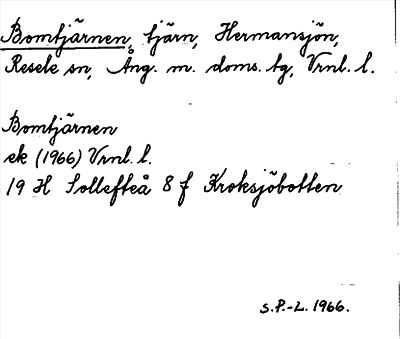 Bomtjärnen, tjärn, Hermansjön,
Resele sn, Ång. m. doms. tg, Vrnl. l.
Bomtjärnen
ek (1966) Vrnl. l.
19 H Sollefteå 8 f Kroksjöbotten
S.P.-L. 1966.